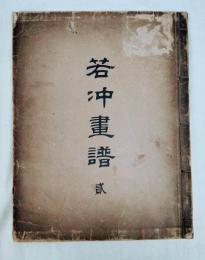 若冲畫譜
貳